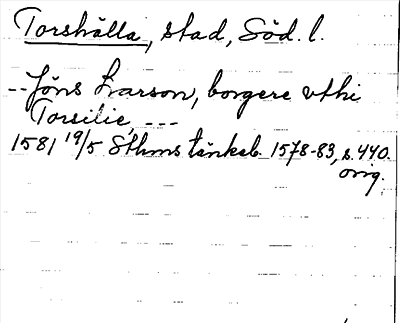 Torshälla, stad, Söd. l.
-- Jöns Larson, borgere vthi
Torsilie, ---
1581 19/5 Sthms tänkeb. 1578-83, s. 440.
orig.